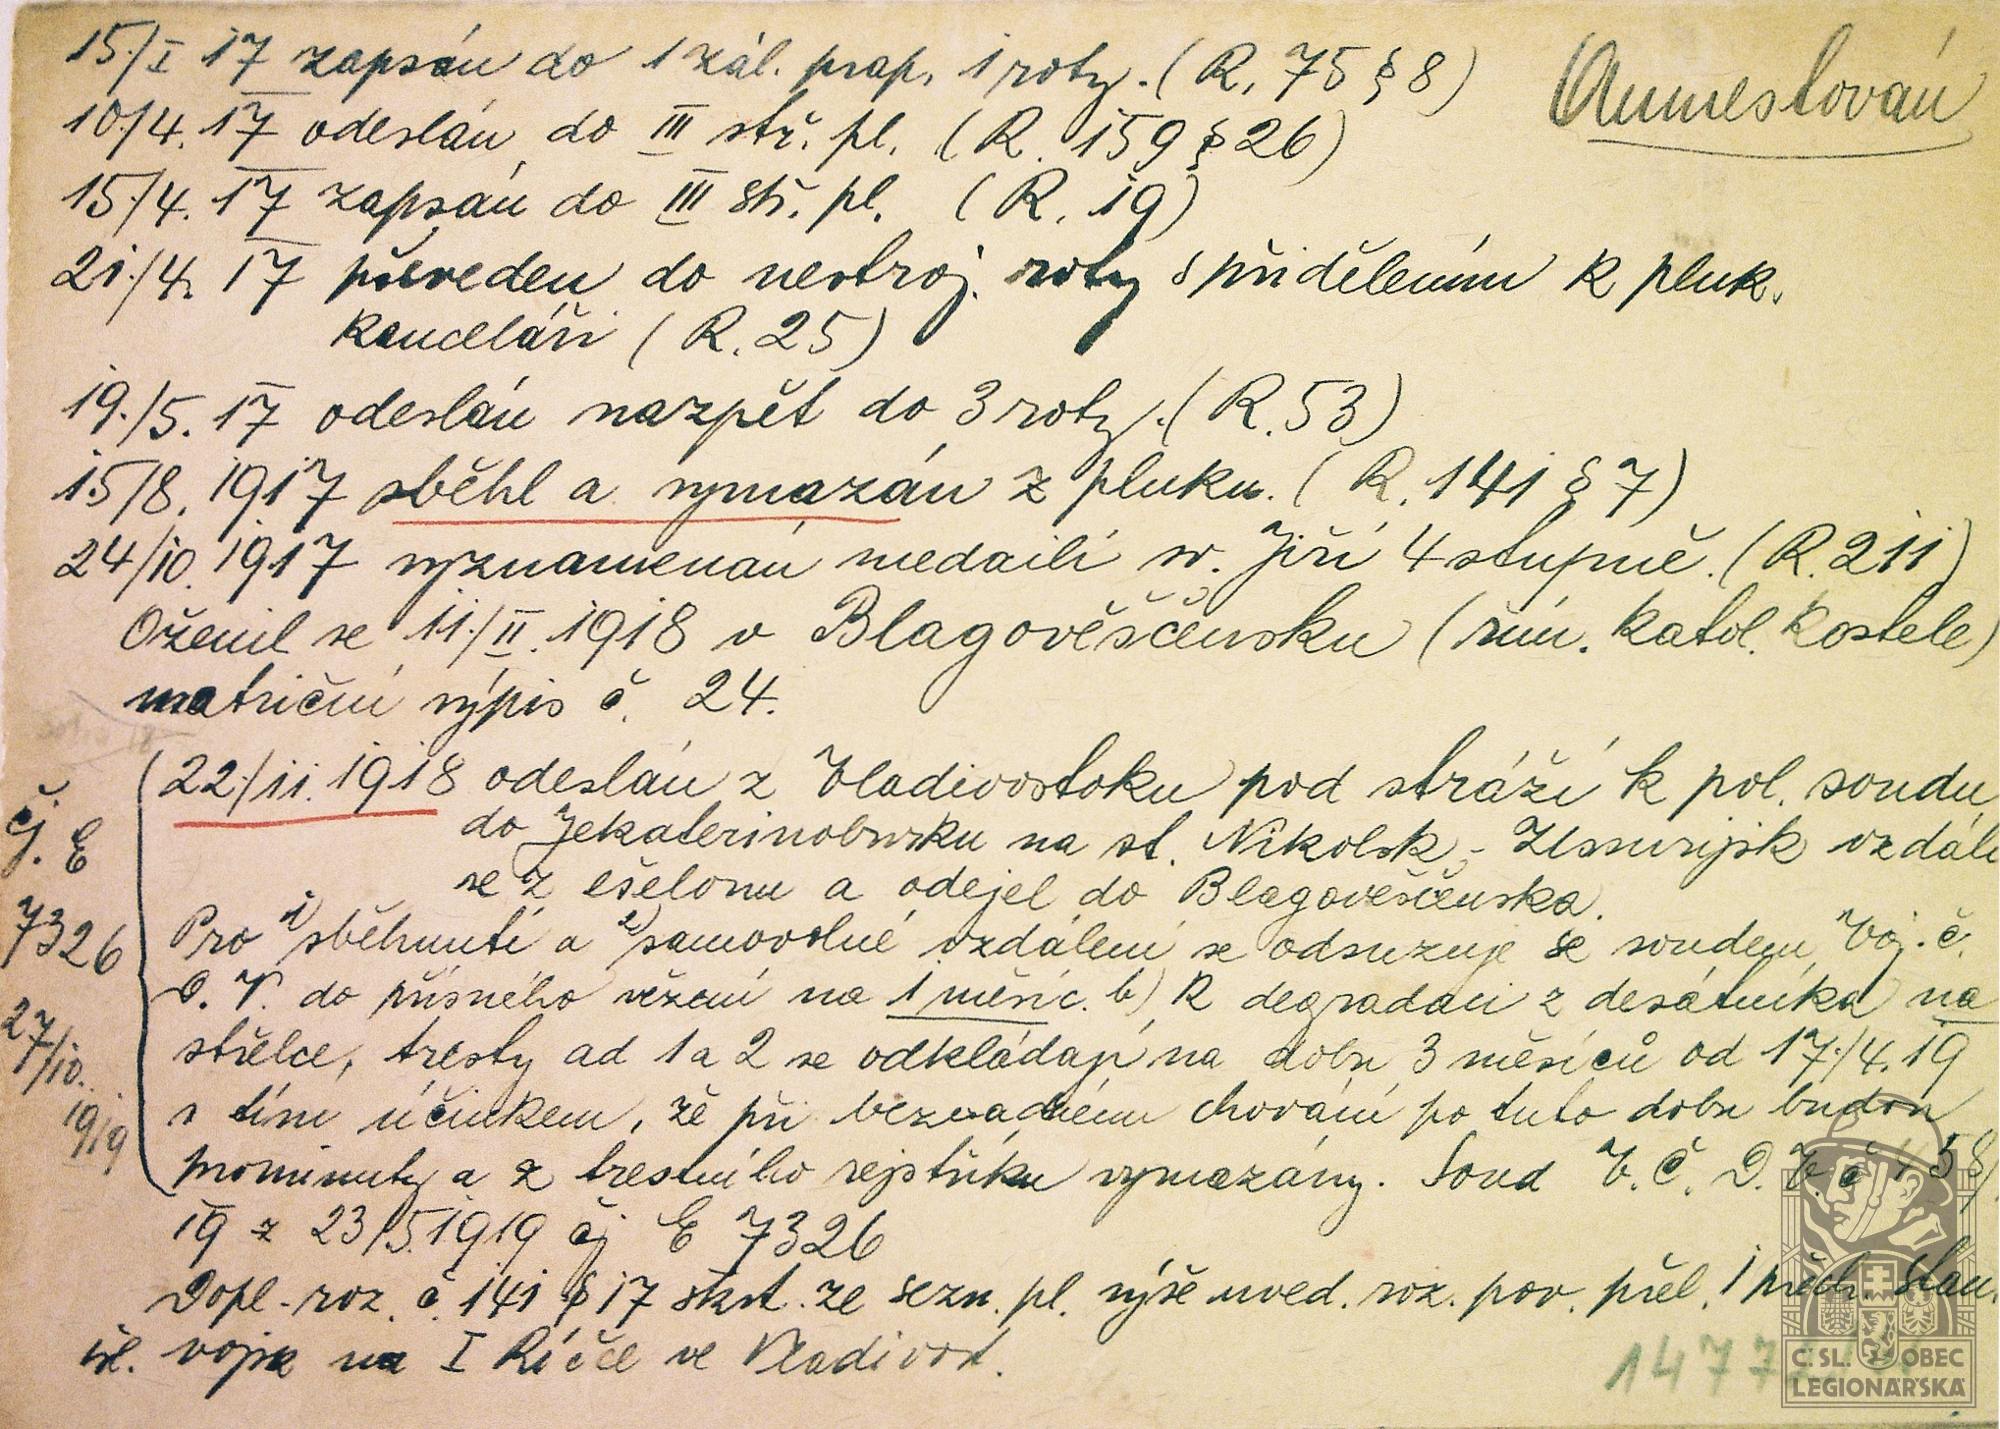 15/I 17 zapsán do 1 zál. prap. 1 roty. (R. 75 § 8)
Amnestován
10/4. 17 odeslán do III stř. pl. (R. 159 § 26)
15/4. 17 zapsán do III stř. pl. (R. 19)
21/4. 17 převeden do nestroj. roty s přidělením k pluk.
kanceláři (R. 25)
19./5. 17 odeslán nazpět do 3 roty. (R. 53)
15/8. 1917 sběhl a vymazán z pluku. (R. 141 § 7)
24/10. 1917 vyznamenán medailí sv. Jiří 4 stupně. (R. 211)
Oženil se 11./II. 1918 v Blagověščensku (řím. katol. kostele)
matriční výpis č. 24.
(22./11. 1918 odeslán z Vladivostoku pod stráží k pol. soudu
do Jekaterinoburku na st. Nikolsk-Ussurijsk vzdáli
se z ešelonu a odejel do Blagověščenska.
Pro 1) sběhnutí a 2) samovolné vzdálení se odsuzuje se soudem Voj. č.
D. V. do přísného vězení na 1 měsíc. b) K degradaci z desátníka na
střelce, tresty ad 1 a 2 se odkládají na dobu 3 měsíců od 17./4. 19
s tím účinkem, že při bezvadném chování po tuto dobu budou
prominuty a z trestního rejstříku vymazány. Soud V. Č. D. V. č 158/
19 z 23/5. 1919 čj E 7326
čj. E
7326
27/10.
19/9
Dopl. roz. č. 141 § 17 škrt. ze sezn. pl. výše uved. roz. pov. přel. 1 přech. stan.
čsl. vojsk na I Říčce ve Vladivost.
1477
Č. SL. OBEC
LEGIONÁŘSKÁ